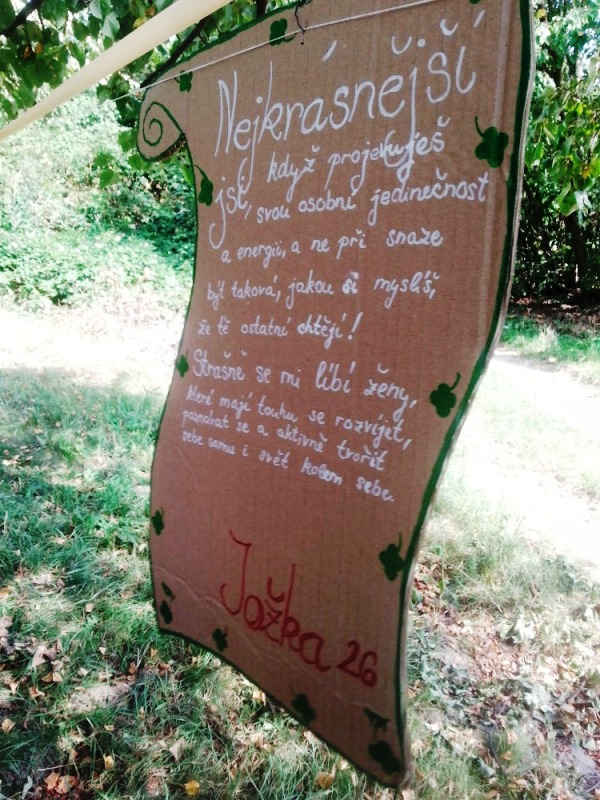 Nejkrásnější
jsi, když projevuješ
svou osobní jedinečnost
a energii, a ne při snaze
být taková, jakou si myslíš,
že tě ostatní chtějí!
Strašně se mi líbí ženy,
které mají touhu se rozvíjet,
poznávat se a aktivně tvořit
sebe samu i svět kolem sebe.
Jožka 26